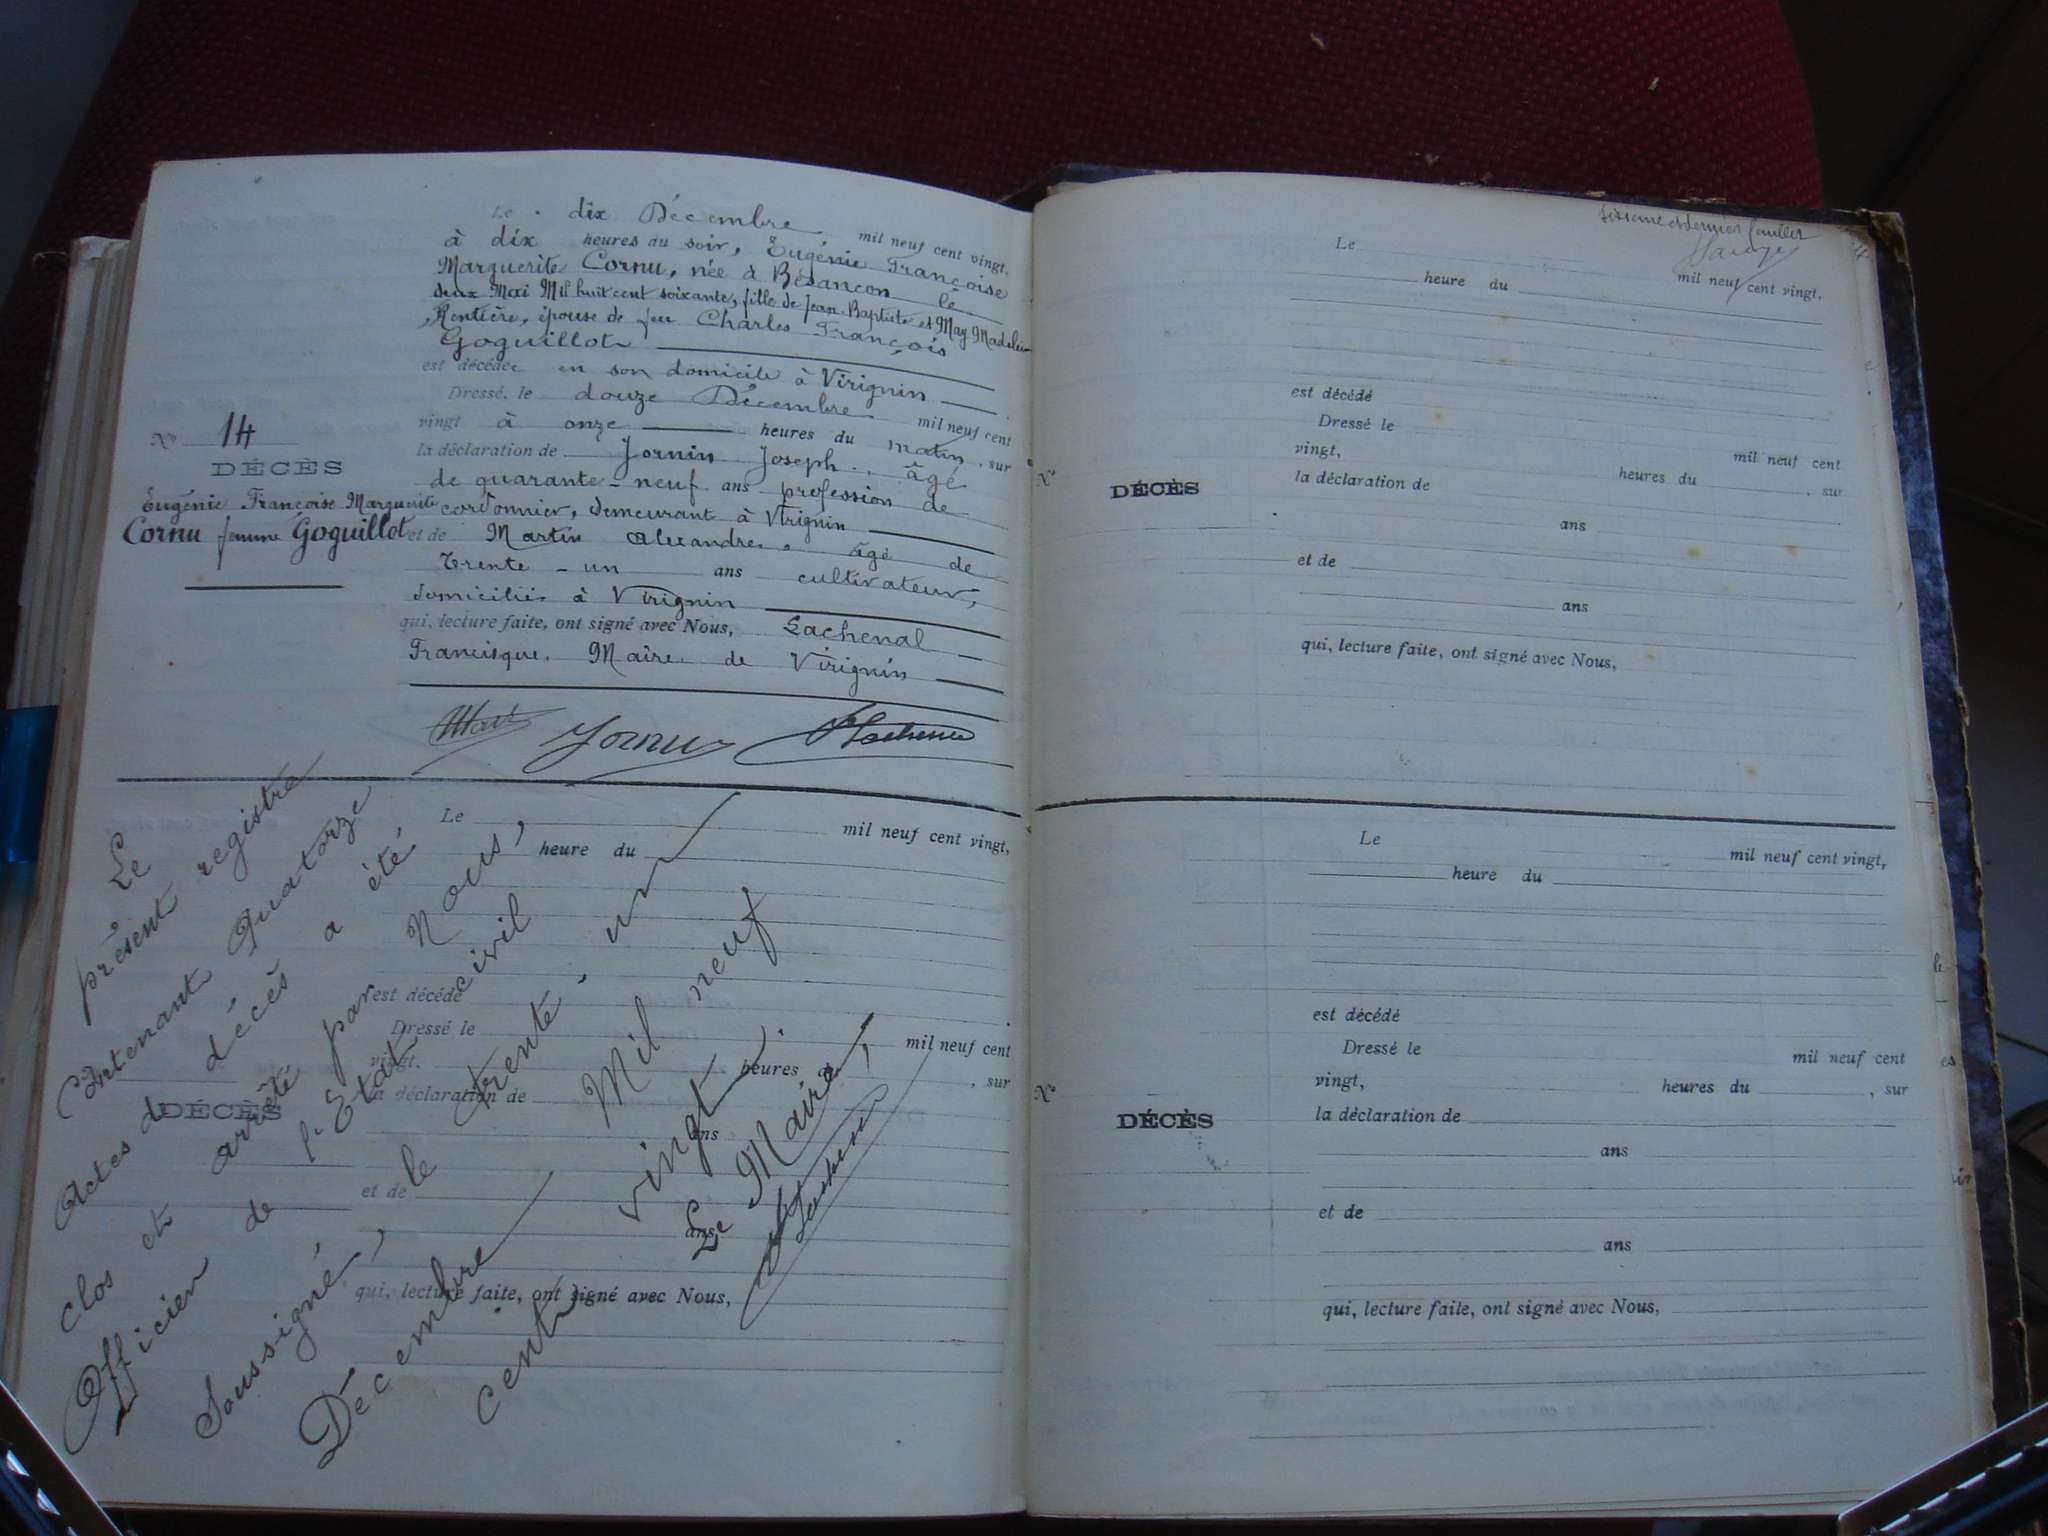 Le dix Décembre mil neuf cent vingt,
à dix heures du soir, Eugénie Françoise
Marguerite Cornu, née à Besançon le
deux Mai Mil huit cent soixante, fille de Jean-Baptiste et May Madeleine
, Rentière, épouse de feu Charles François
Goguillot
est décédée en son domicile à Virignin
Dressé le douze Décembre mil neuf cent
vingt à onze heures du matin, sur
la déclaration de Jornin Joseph, âgé
de quarante-neuf ans profession de
cordonnier, demeurant à Virignin
et de Martin Alexandre, âgé de
Trente-un ans cultivateur,
domiciliés à Virignin
qui, lecture faite, ont signé avec Nous, Lachenal
Francisque. Maire de Virignin
No 14
DÉCÈS
Eugénie Françoise Marguerite
Cornu femme Goguillot
Le mil neuf cent vingt,
heure du
est décédé
Dressé le mil neuf cent
vingt, heures du , sur
DÉCÈS
la déclaration de
ans
et de
ans
qui, lecture faite, ont signé avec Nous,
Le
présent registre
Contenant Quatorze
Actes de décès a été
clos et arrêté par Nous,
Officier de l'Etat civil
Soussigné, le trente-un
Décembre Mil neuf
cent vingt
Le Maire,
sixième et dernier feuillet
Le mil neuf cent vingt,
heure du
est décédé
Dressé le mil neuf cent
vingt, heures du , sur
No
DÉCÈS
la déclaration de
ans
et de
ans
qui, lecture faite, ont signé avec Nous,
Le mil neuf cent vingt,
heure du
est décédé
Dressé le mil neuf cent
vingt, heures du , sur
No
DÉCÈS
la déclaration de
ans
et de
ans
qui, lecture faite, ont signé avec Nous,